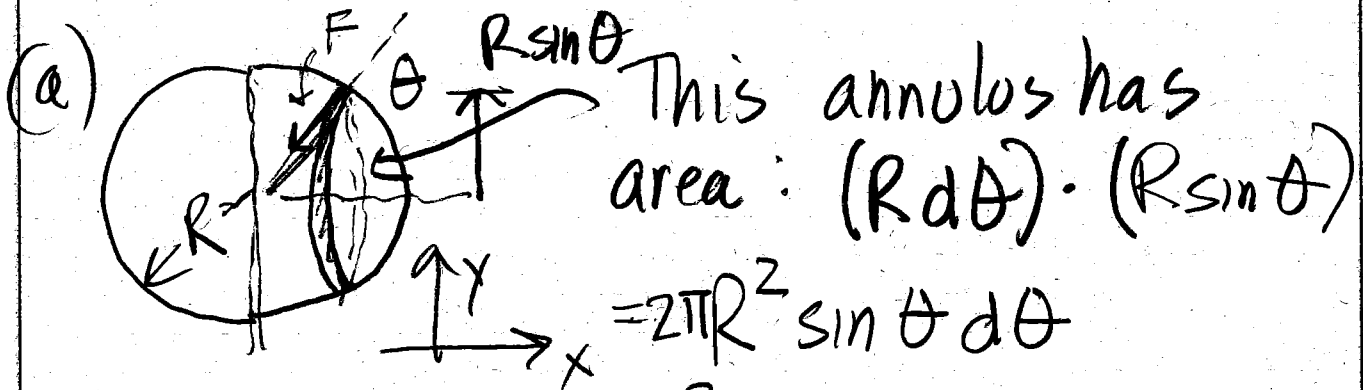 (a) F θ R sin θ This annulus has
R area: (Rdθ)·(R sin θ)
y =2πR² sin θ dθ
x